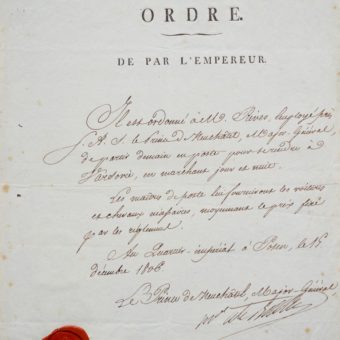 ORDRE.
DE PAR L'EMPEREUR.
Il est ordonné à M. Rives, employé près
S. A. S. le Prince de Neuchâtel, Major-Général
de partir demain en poste pour se rendre à
Varsovie, en marchant jour et nuit.
Les maîtres de poste lui fourniront les voitures
et chevaux nécessaires, moyennant le prix fixé
par les règlemens.
Au Quartier-impérial à Posen, le 15
décembre 1806
Le Prince de Neuchâtel, Major-Général